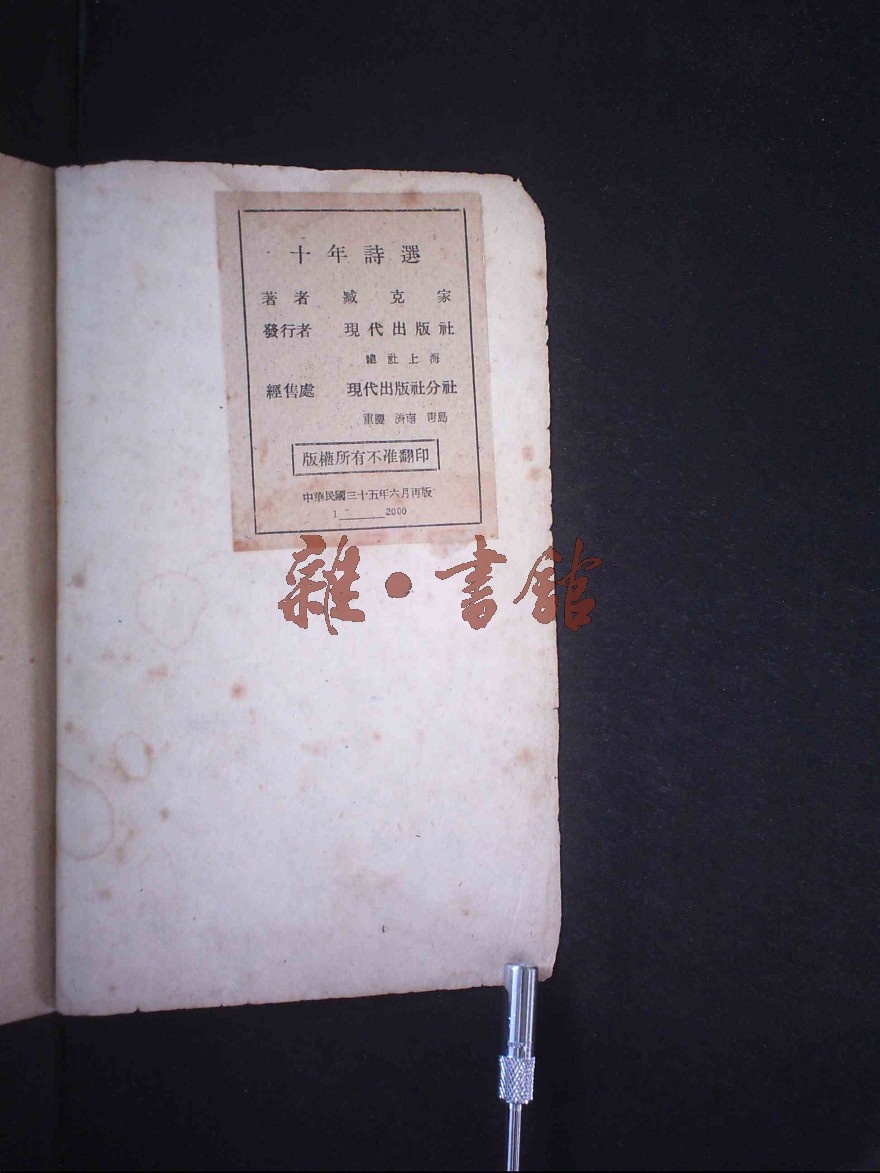 十年詩選
著者 臧克家
發行者 現代出版社
總社上海
經售處 現代出版社分社
重慶 濟南 靑島
版權所有不准翻印
中華民國三十五年六月再版
1——2000
雜·書館